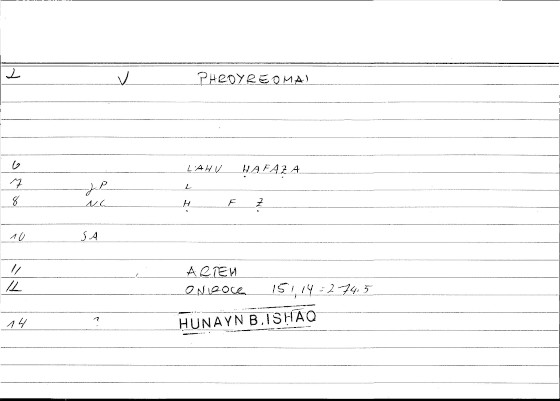 1 V PHROYREOMAI
6 LAHU ḤAFAẒA
7 JP L
8 NC Ḥ F Ẓ
10 SA
11 ARTEM
12 ONIROCR 151,14 = 274.5
14 ? HUNAYN B. ISHAQ